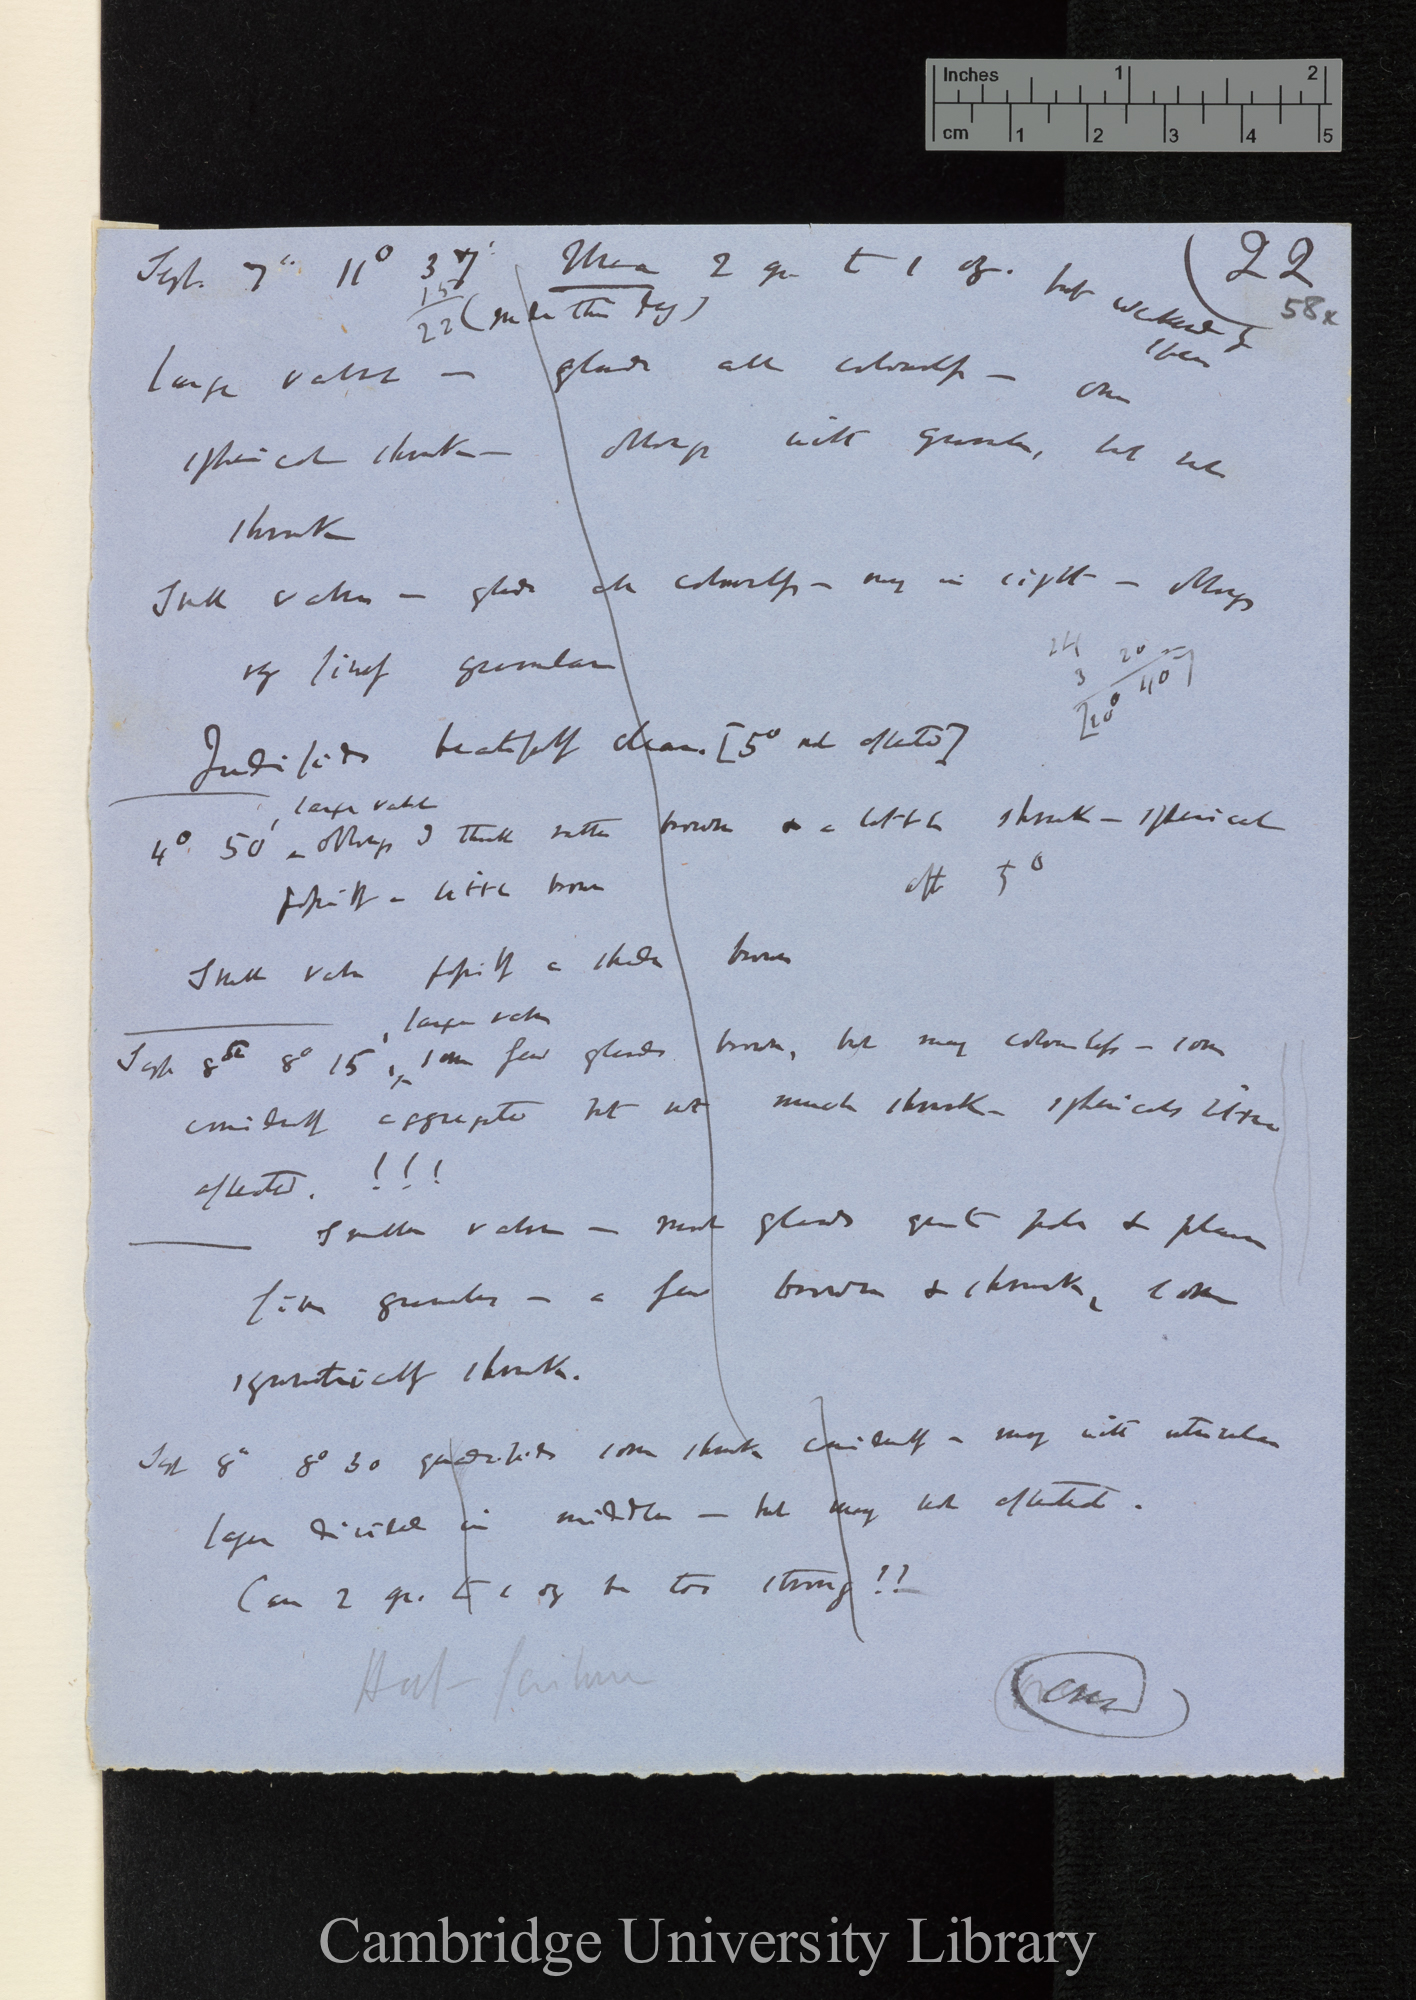 Inches 1 2
cm 1 2 3 4 5
(22
58x
Sept. 7th 11° 37' Urea 2 gr. to 1 oz. but washed &
15
22 (made this day)
large valve — glands all colourless — one
spherical shrunk — oblongs with granules, but not
shrunk
Small valve — glands all colourless — many in sight — oblongs
very finely granular
24
3 20
[20° 40']
Quadrifids beautifully clear. [5° not affected]
large valve
4° 50', oblongs I think rather brown & a little shrunk — spherical
perhaps a little brown after 5°
Small valve perhaps a shade brown
large valve
Sept 8th 8° 15', some few glands brown, but many colourless — some
considerably aggregated but not much shrunk — sphericals little
affected. !!!
Smaller valve — most glands quite pale &
fine granules — a few brown & shrunk, some
symmetrically shrunk.
Sept 8th 8° 30 quadrifids some shrunk considerably — many with utricular
layer divided in middle — but many not affected.
Can 2 gr. to 1 oz be too strong!!
Half failure
Cambridge University Library